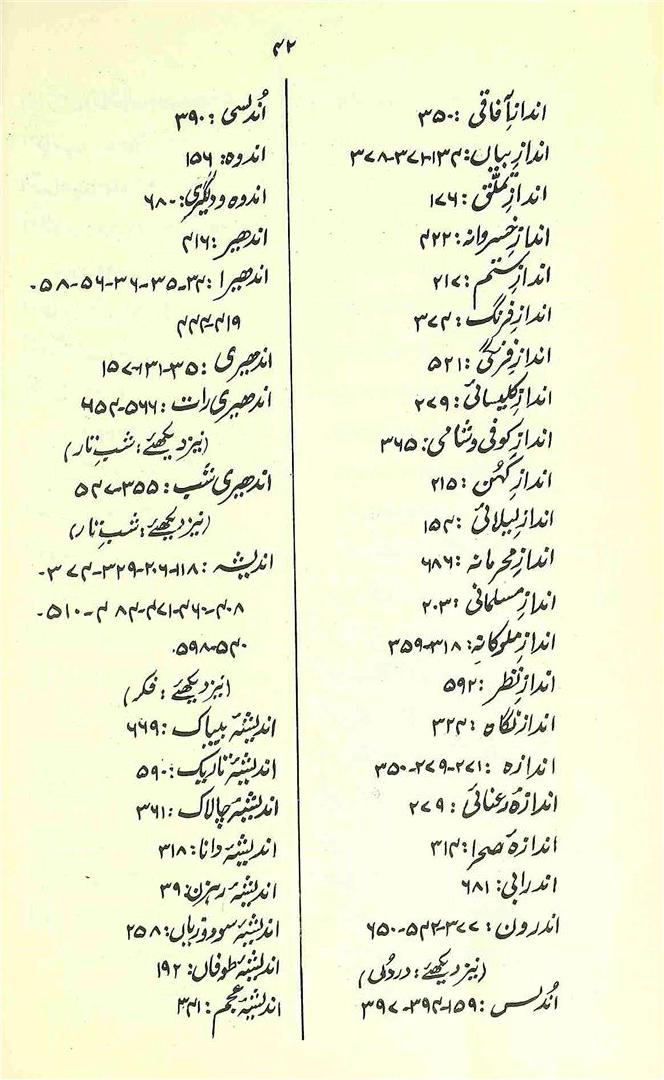 ۴۲
اندازِ آفاقی: ۳۵۰
اندازِ بیاں: ۱۳۴-۳۷۱-۳۷۸
اندازِ تملّق: ۱۷۶
اندازِ خسروانہ: ۴۲۲
اندازِ ستم: ۲۱۷
اندازِ فرنگ: ۳۷۴
اندازِ فرنگی: ۵۲۱
اندازِ کلیسائی: ۲۷۹
اندازِ کوفی و شامی: ۳۶۵
اندازِ کہُن: ۲۱۵
اندازِ لیلائی: ۱۵۴
اندازِ محرمانہ: ۶۸۶
اندازِ مسلمانی: ۲۰۳
اندازِ ملوکانہ: ۳۱۸-۳۵۹
اندازِ نظر: ۵۹۲
اندازِ نگاہ: ۳۲۴
اندازہ: ۲۷۱-۲۷۹-۳۵۰
اندازۂ رعنائی: ۲۷۹
اندازۂ صحرا: ۳۱۴
اندرابی: ۶۸۱
اندرون: ۳۷۷-۵۴۲-۶۵۰
(نیز دیکھئے: درد دلی)
اُندلس: ۱۵۹-۳۹۴-۳۹۷
اُندلسی: ۳۹۰
اندوہ: ۱۵۶
اندوہ و دلگیری: ۶۸۰
اندھیر: ۴۱۶
اندھیرا: ۳۴-۳۵-۳۶-۵۶-۵۸-
۴۱۹-۴۴۴
اندھیری: ۳۵-۱۳۱-۱۵۷
اندھیری رات: ۵۶۶-۶۵۴
(نیز دیکھئے: شبِ تار)
اندھیری شب: ۳۵۵-۵۴۷
(نیز دیکھئے: شبِ تار)
اندیشہ: ۱۱۸-۲۰۶-۳۲۹-۳۷۴-
۴۰۸-۴۶۰-۴۷۱-۴۸۴-۵۱۰-
۵۴۰-۵۹۸
(نیز دیکھئے: فکر)
اندیشۂ بیباک: ۶۶۹
اندیشۂ تاریک: ۵۹۰
اندیشۂ چالاک: ۳۶۱
اندیشۂ دانا: ۳۱۸
اندیشۂ رہزن: ۳۹
اندیشۂ سود و زیاں: ۲۵۸
اندیشۂ طوفاں: ۱۹۲
اندیشۂ عجم: ۳۴۱